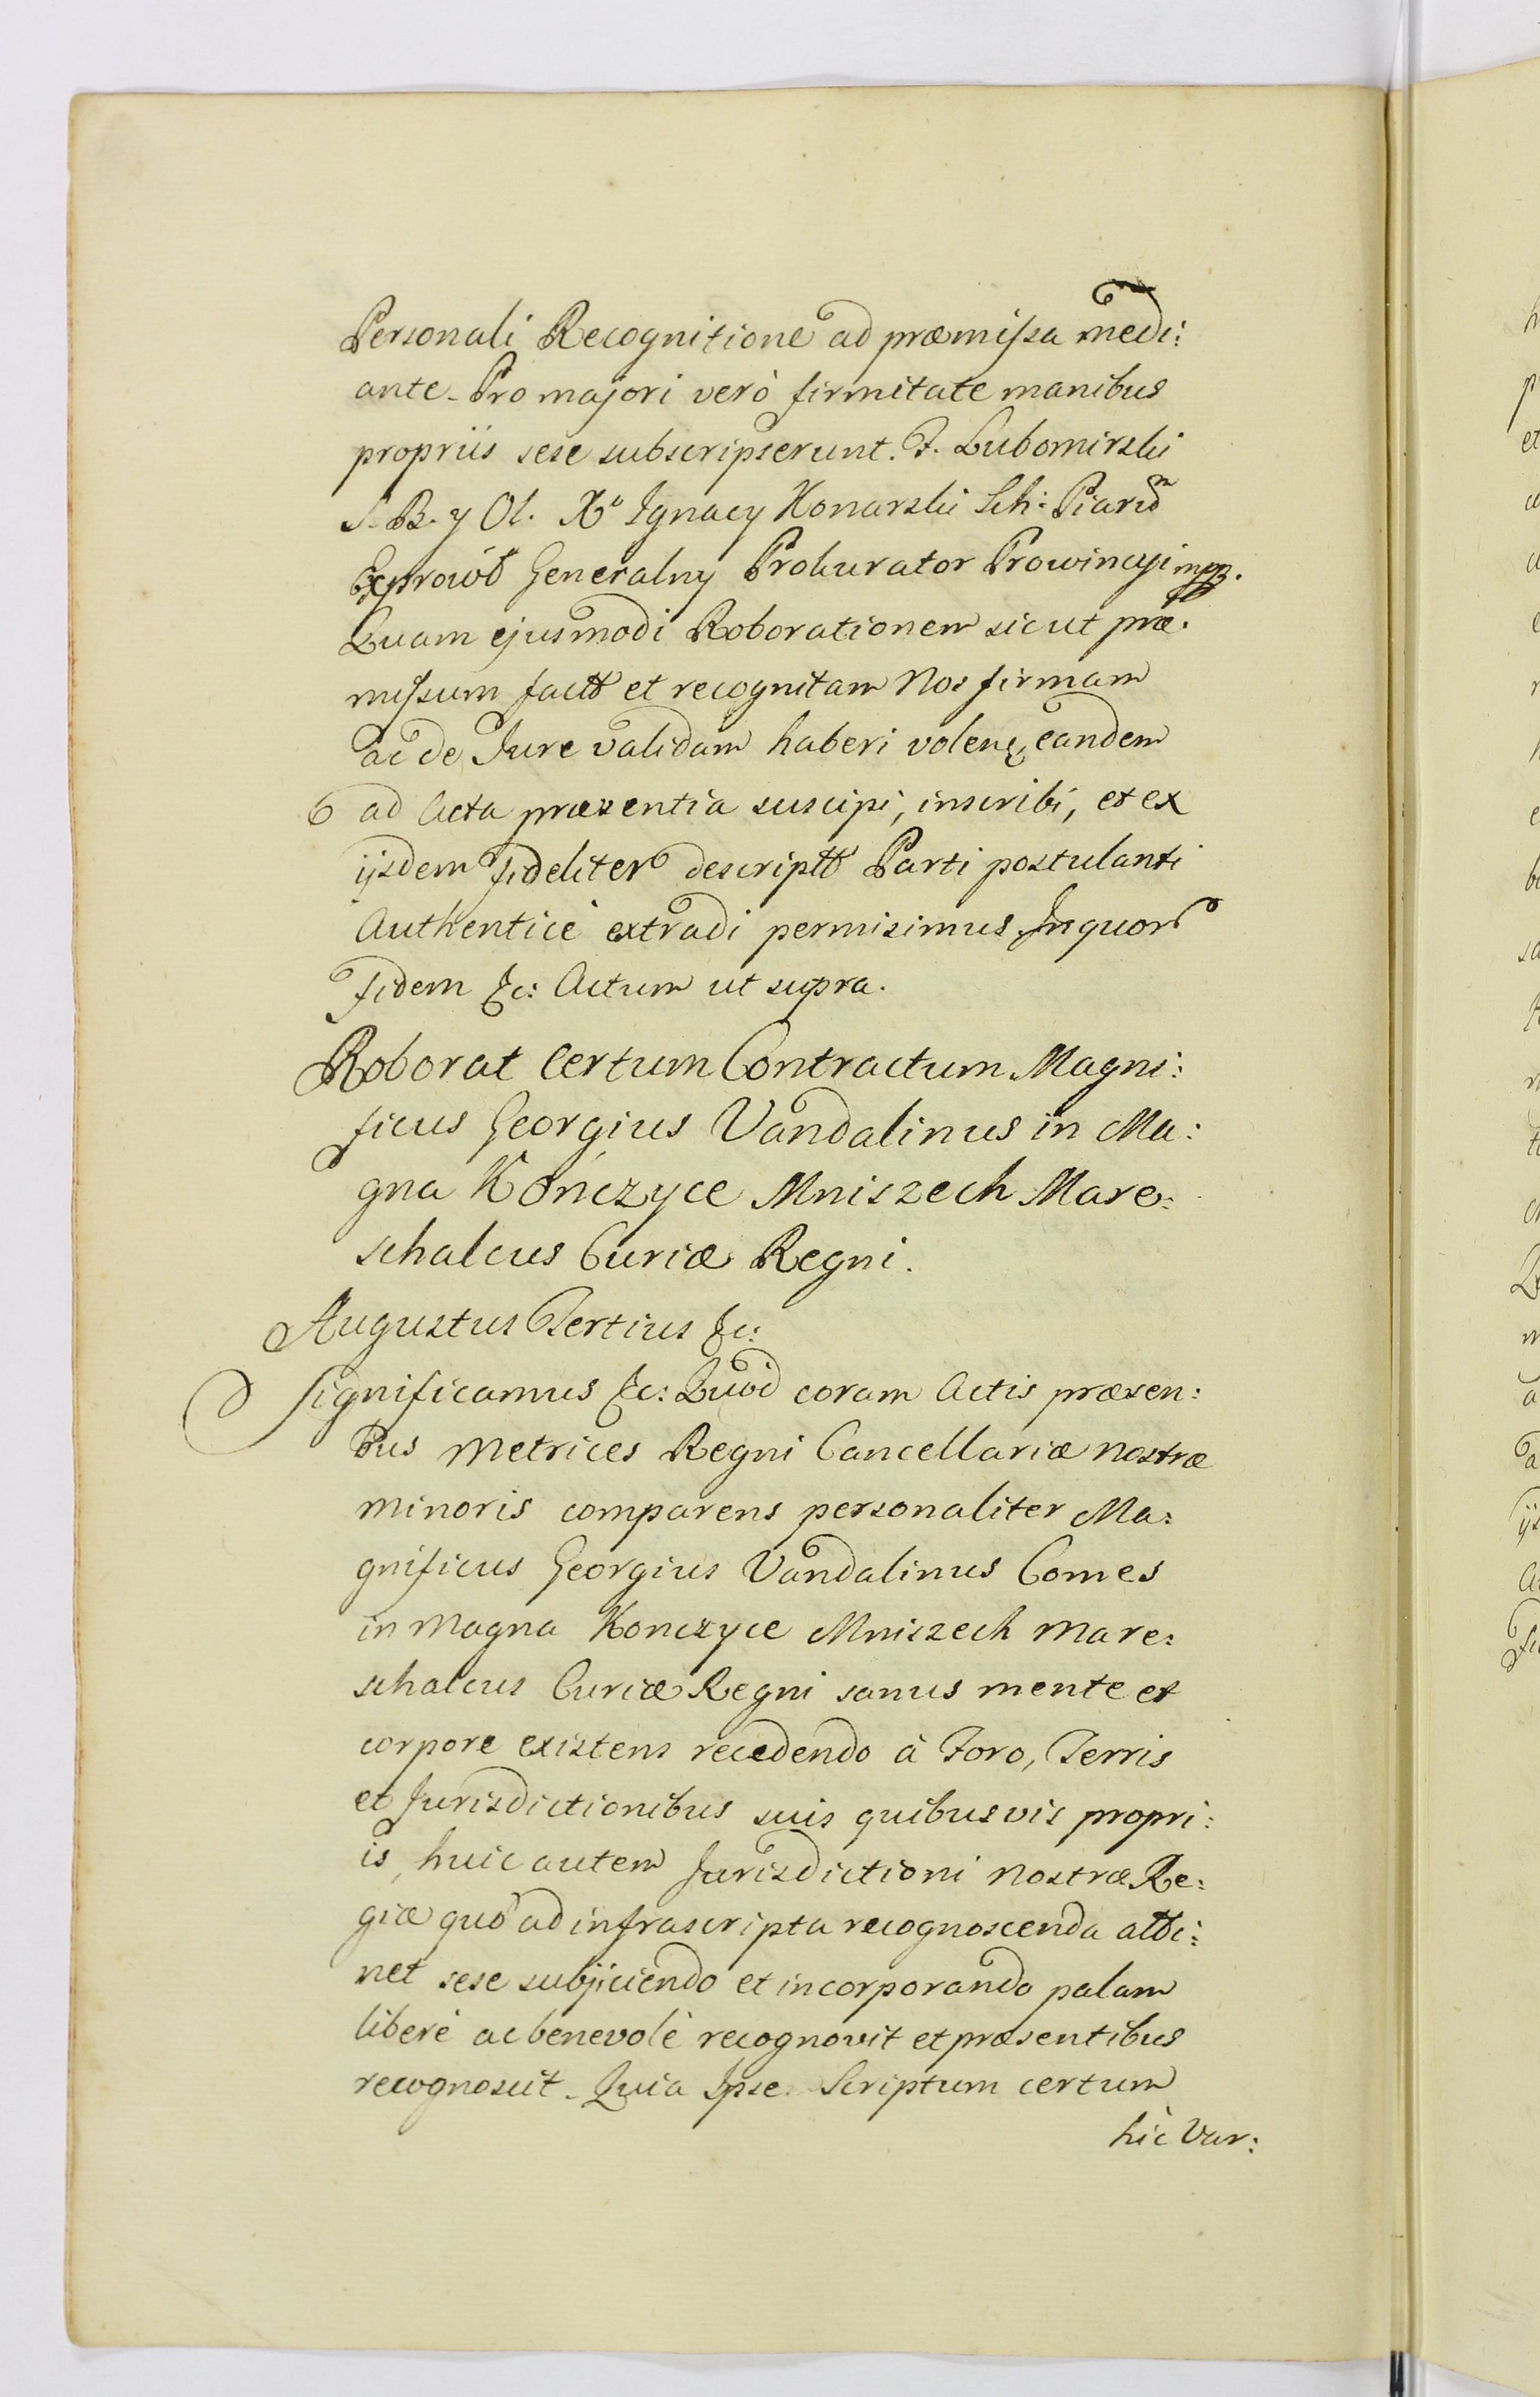 Personali Recognitione ad præmissa medi:
ante. Pro majori verò firmitate manibus
propriis sese subscripserunt. F. Lubomirski
S. B. y Ol. Xº Ignacy Konarski Sch: Piarū
Generalny Prokurator Prowincyi mpp.
Quam ejusmodi Roborationem sicut præ:
missum factã et recognitam Nos firmam
ac de Jure validam haberi volentes, eandem
ad Acta præsentia suscipi, inscribi, et ex
ijsdem fideliter descriptã Parti postulanti
Authenticè extradi permisimus. In quor
fidem &c: Actum ut supra.
Roborat Certum Contractum Magni:
ficus Georgius Vandalinus in Ma:
gna Kończyce Mniszech Mare:
schalcus Curiæ Regni.
Augustus Tertius &c:
Significamus &c: Quòd coram Actis præsen:
tibus Metrices Regni Cancellariæ nostræ
minoris comparens personaliter Ma:
gnificus Georgius Vandalinus Comes
in Magna Konczyce Mniszech Mare:
schalcus Curiæ Regni sanus mente et
corpore existens recedendo à Foro, Terris
et Jurisdictionibus suis quibusvis propri:
is, huic autem Jurisdictioni Nostræ Re:
giæ quo ad infrascripta recognoscenda atti:
net sese subjiciendo et incorporando palam
liberè ac benevolè recognovit et præsentibus
recognoscit. Quia Ipse Scriptum certum
hìc Var: